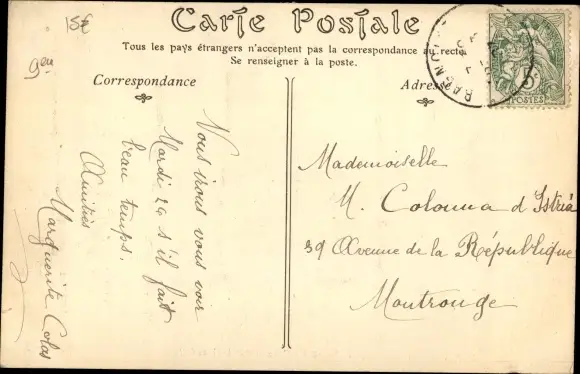 15€
Carte Postale
Tous les pays étrangers n'acceptent pas la correspondance au recto
Se renseigner à la poste.
Correspondance
Adresse
5
POSTES
Vous irons vous voir
Mardi 29 s'il fait
beau temps.
Amitiés
Marguerite Colas
Mademoiselle
M. Colonna d'Istria
39 Avenue de la République
Montrouge